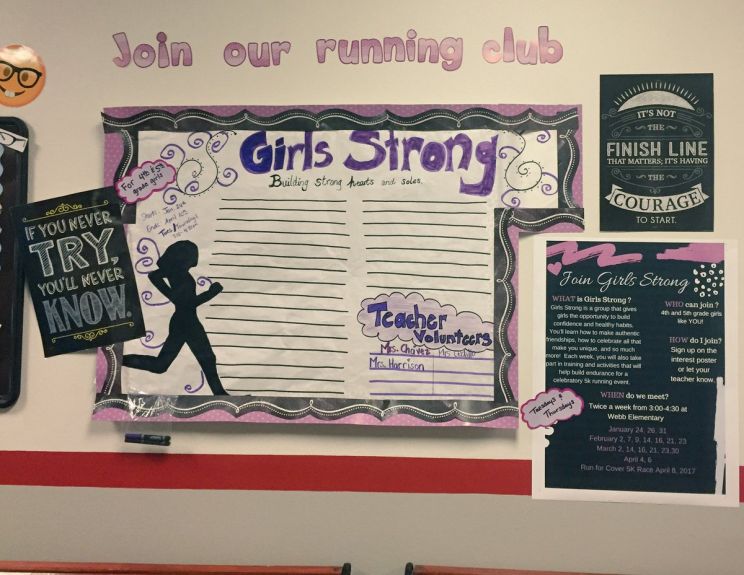 Join our running club
Girls Strong
Building strong hearts and soles.
For 4th & 5th
grade girls
IF YOU NEVER
TRY,
YOU'LL NEVER
KNOW.
Teacher
Volunteers
Mrs. Chavez
Mrs. Harrison
IT'S NOT
THE
FINISH LINE
THAT MATTERS; IT'S HAVING
THE
COURAGE
TO START.
Join Girls Strong
WHAT is Girls Strong?
Girls Strong is a group that gives
girls the opportunity to build
confidence and healthy habits.
You'll learn how to make authentic
friendships, how to celebrate all that
make you unique, and so much
more! Each week, you will also take
part in training and activities that will
help build endurance for a
celebratory 5k running event.
WHO can join?
4th and 5th grade girls
like YOU!
HOW do I join?
Sign up on the
interest poster
or let your
teacher know.
WHEN do we meet?
Twice a week from 3:00-4:30 at
Webb Elementary
Tuesdays &
Thursdays
January 24, 26, 31
February 2, 7, 9, 14, 16, 21, 23
March 2, 14, 16, 21, 23,30
April 4, 6
Run for Cover 5K Race April 8, 2017